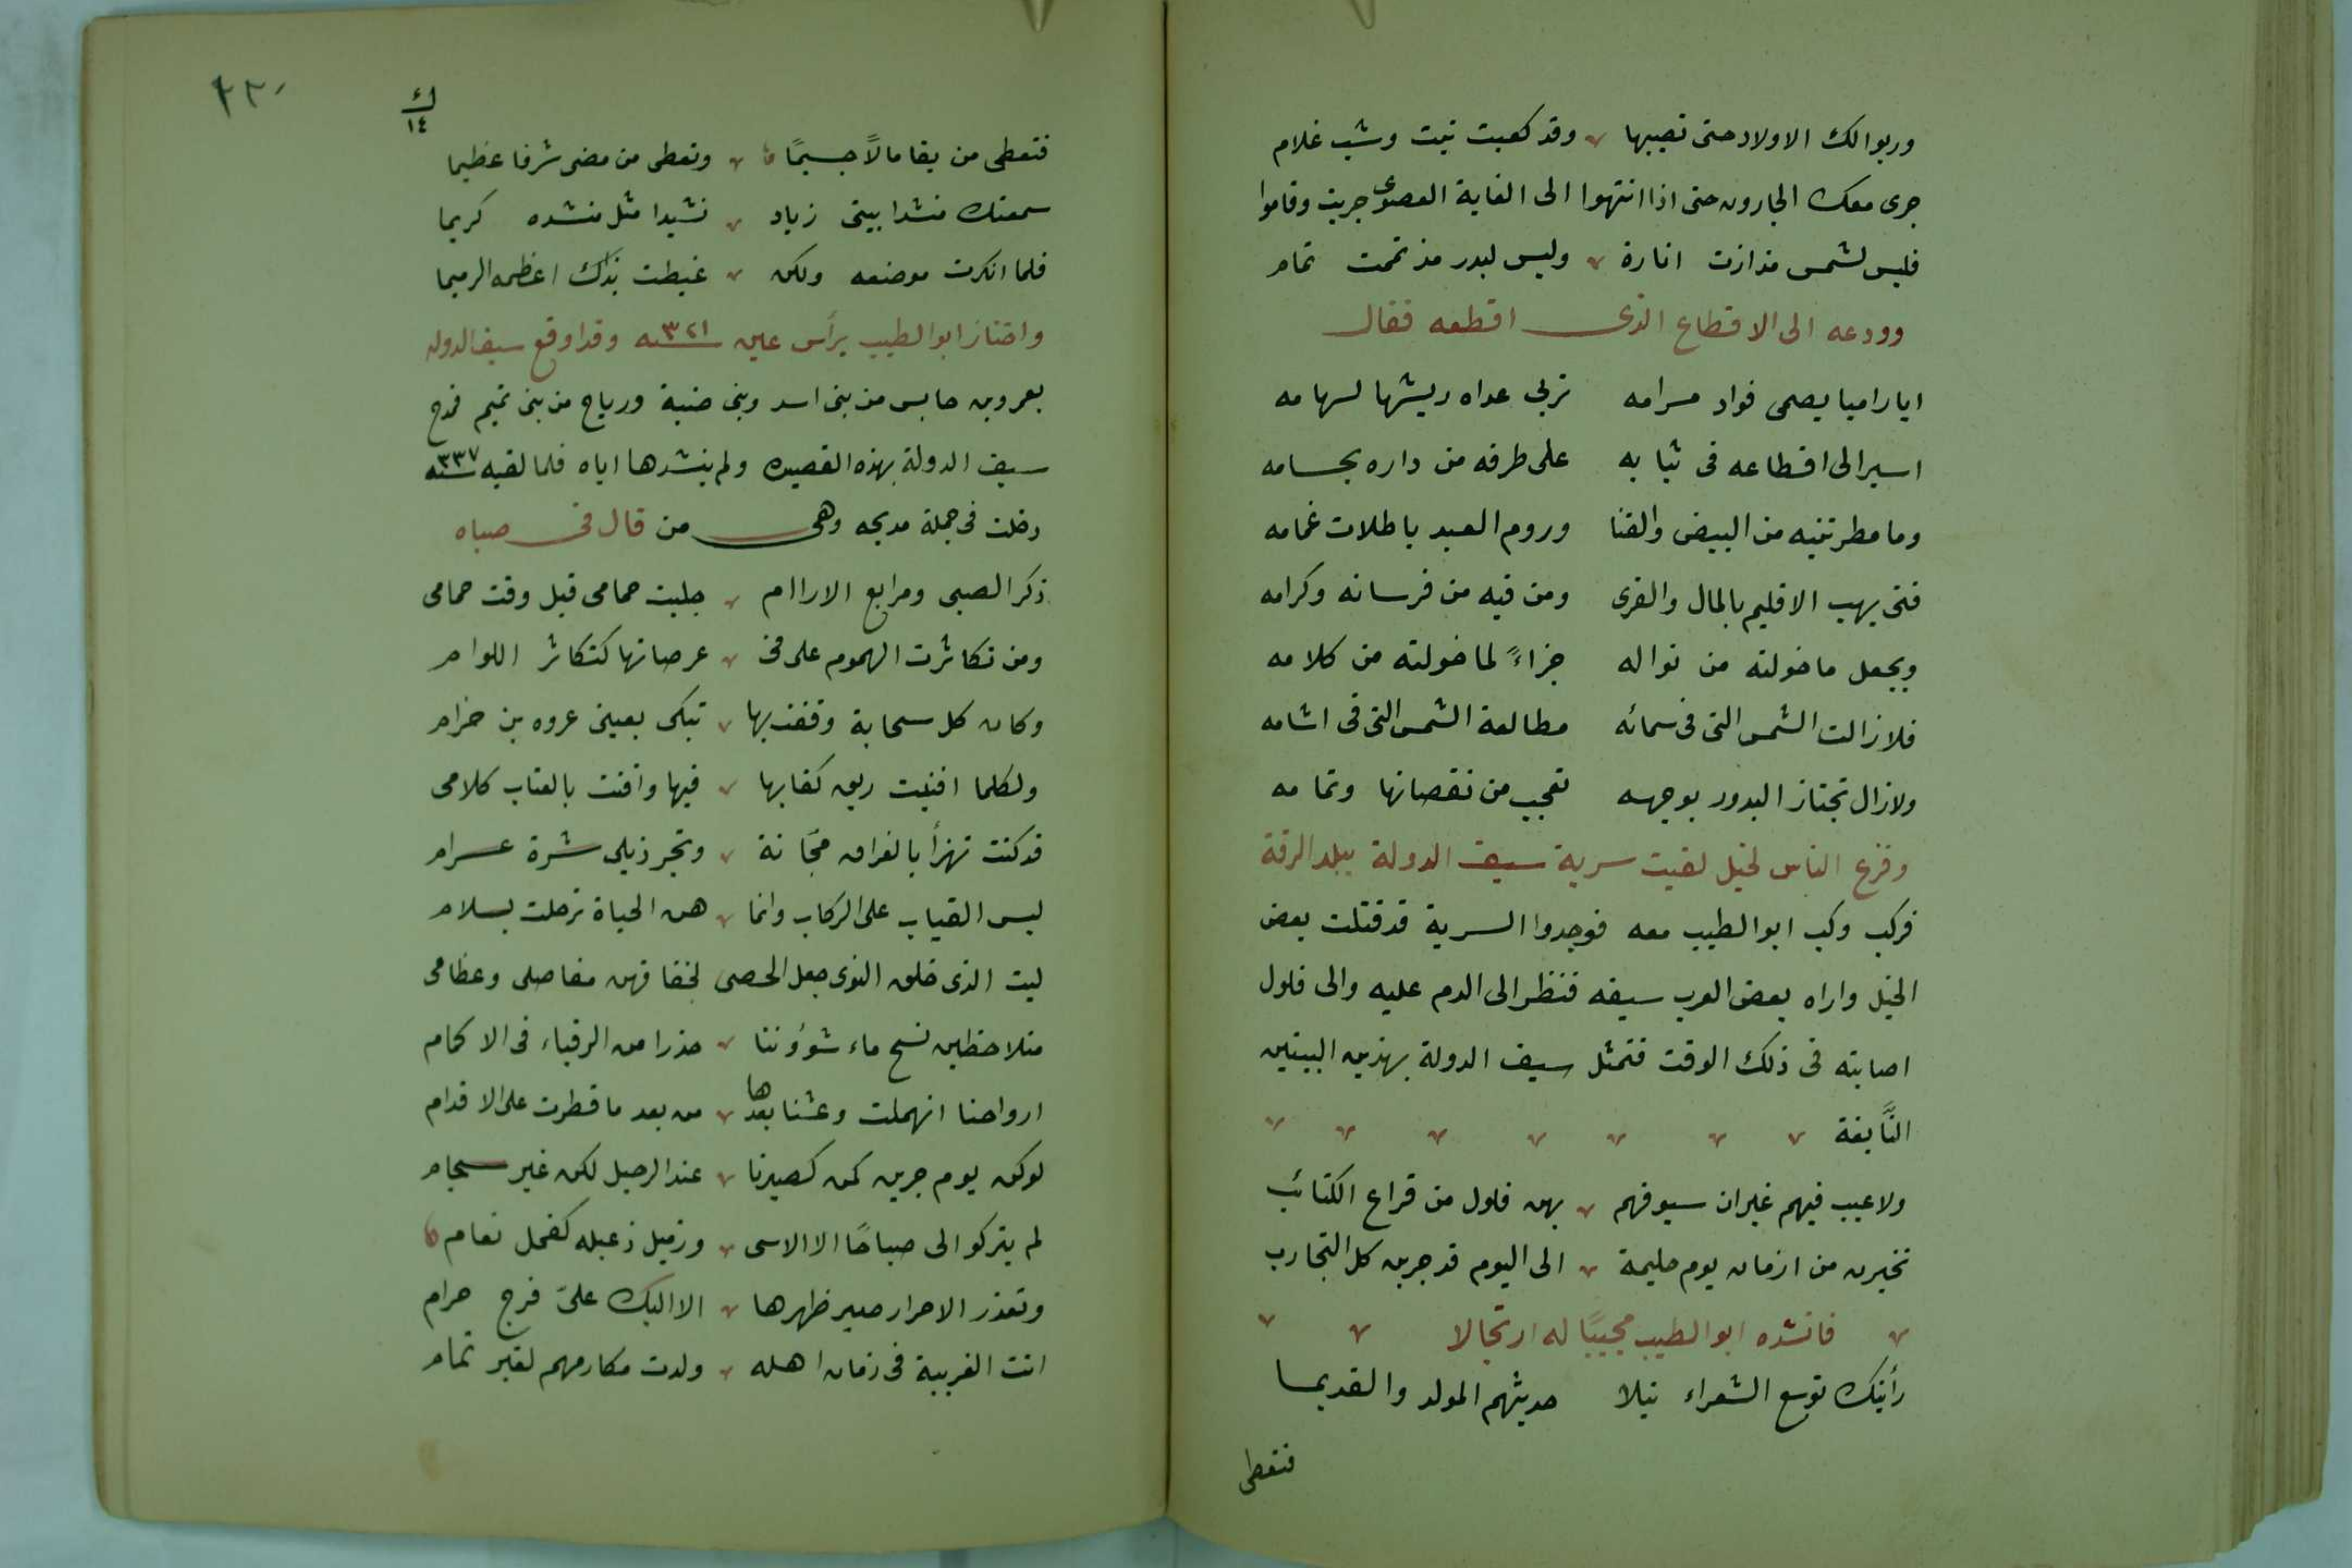 وربوا لك الاولاد حتى تصيبها وقد كعبت بنت وشب غلام
جرى معك الجارون حتى اذا انتهوا الى الغاية القصوى جريت وقاموا
فليس لشمس مذ انرت انارة وليس لبدر مذ تممت تمام
وودعه الى الاقطاع الذى اقطعه فقال
ايا راميا يصمى فواد مرامه تربى عداه ريشها لسهامه
اسير الى اقطاعه فى ثيابه على طرفه من داره بحسامه
وما مطرتنيه من البيض والقنا وروم العبد باطلات غمامه
فتى يهب الاقليم بالمال والقرى ومن فيه من فرسانه وكرامه
ويجعل ما خولته من نواله جزاءً لما خولته من كلامه
فلا زالت الشمس التى فى سمائه مطالعة الشمس التى فى اثامه
ولا زال تجتاز البدور بوجهه تعجب من نقصانها وتمامه
وفزع الناس لخيل لقيت سرية سيف الدولة ببلد الرقة
فركب وكب ابو الطيب معه فوجدوا السرية قد قتلت بعض
الخيل واراه بعض العرب سيفه فنظر الى الدم عليه والى فلول
اصابته فى ذلك الوقت فتمثل سيف الدولة بهذين البيتين
النَّابغة
ولا عيب فيهم غير ان سيوفهم بهن فلول من قراع الكتائب
تخيرن من ازمان يوم حليمة الى اليوم قد جربن كل التجارب
فانشده ابو الطيب مجيبًا له ارتجالا
رأيتك توسع الشعراء نيلا حديثهم المولد والقديما
فتعطى
٢٣٠
ك
١٤
فتعطى من بقا مالاً جسيمًا وتعطى من مضى شرفا عظيما
سمعتك منشدا بيتى زياد نشيدا مثل منشده كريما
فلما انكرت موضعه ولكن غبطت بذاك اعظمه الرميما
واجتاز ابو الطيب برأس عين سنه ٣٢١ وقد اوقع سيف الدوله
بعمرو بن حابس من بنى اسد وبنى ضبة ورياح من بنى تميم فمدح
سيف الدولة بهذه القصيده ولم ينشدها اياه فلما لقيه سنه ٣٣٧
دخلت فى جملة مديحه وهى من قال فى صباه
ذكر الصبى ومرابع الاراام جلبت حمامى قبل وقت حمامى
ومن تكاثرت الهموم على فى عرصاتها كتكاثر اللوام
وكان كل سحابة وقفت بها تبكى بعينى عروه بن حزام
ولكلما افنيت ريق كعابها فيها وافنت بالعتاب كلامى
قد كنت تهزأ بالفراق مجَانة وتجر ذيلى شرة عرام
ليس القباب على الركاب وانما هن الحياة ترحلت بسلام
ليت الذى خلق النوى جعل الحصى لخفافهن مفاصلى وعظامى
متلاحظين نسح ماء شوؤننا حذرا من الرقباء فى الاكمام
ارواحنا انهملت وعشنا بعدها من بعد ما قطرت على الاقدام
لو كن يوم جرين كن كصبرنا عند الرحيل لكن غير سجام
لم يتركوا لى صباحًا الا الاسى وذميل ذعبله كفحل نعام
وتعذر الاحرار صير ظهرها الا اليك علىّ فرج حرام
انت الغريبة فى زمان اهله ولدت مكارمهم لغير تمام